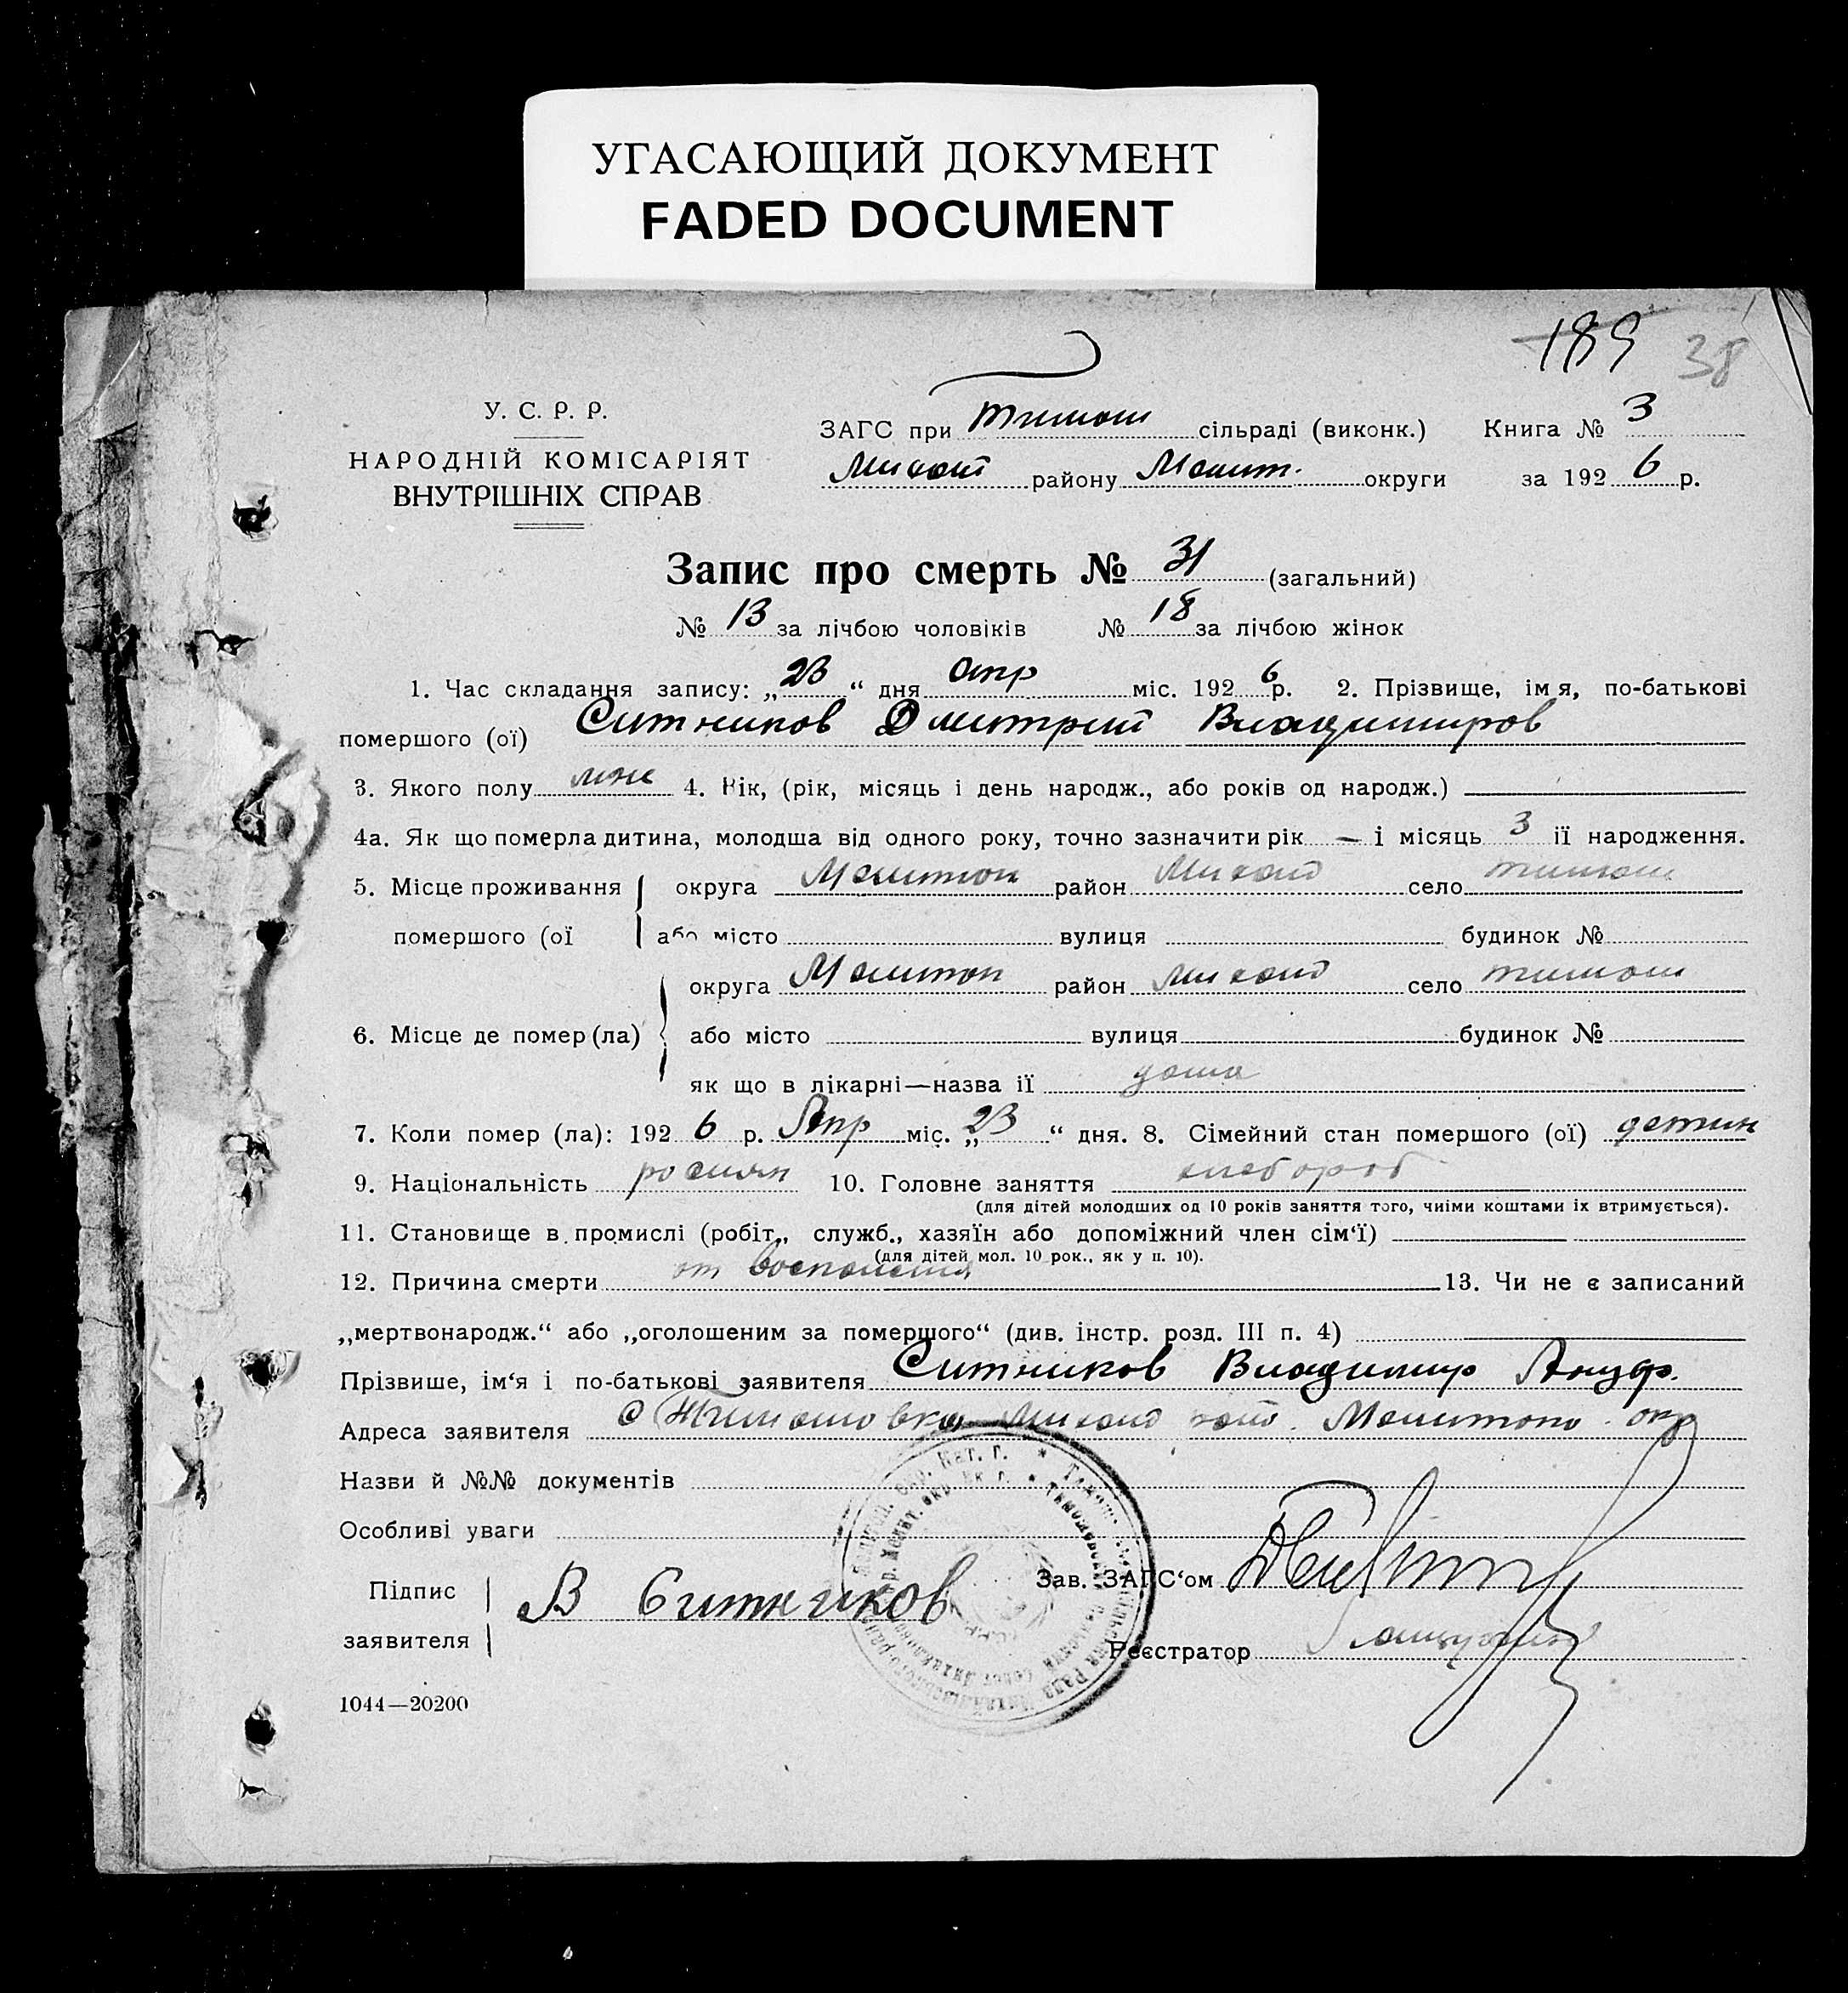 УГАСАЮЩИЙ ДОКУМЕНТ
FADED DOCUMENT
189 38
У. С. Р. Р.
НАРОДНІЙ КОМІСАРІЯТ
ВНУТРІШНІХ СПРАВ
ЗАГС при Тимош сільраді (виконк.) Книга № 3
Михайл району Мелит. округи за 1926 р.
Запис про смерть № 31 (загальний)
№ 13 за лічбою чоловіків № 18 за лічбою жінок
1. Час складання запису: „23“ дня Апр міс. 1926 р. 2. Прізвище, імя, по-батькові
помершого (ої) Ситников Дмитрий Владимиров
3. Якого полу муж 4. Вік, (рік, місяць і день народж., або років од народж.)
4а. Як що померла дитина, молодша від одного року, точно зазначити рік — і місяць 3 її народження.
5. Місце проживання округа Мелитоп район Михайл село Тимош
помершого (ої або місто вулиця будинок №
округа Мелитоп район Михайл село Тимош
6. Місце де помер (ла) або місто вулиця будинок №
як що в лікарні—назва її дома
7. Коли помер (ла): 1926 р. Апр міс. „23“ дня. 8. Сімейний стан помершого (ої) детин
9. Національність росиян 10. Головне заняття хлебороб
(для дітей молодших од 10 років заняття того, чиїми коштами їх втримується).
11. Становище в промислі (робіт., служб., хазяїн або допоміжний член сім‘ї)
(для дітей мол. 10 рок., як у п. 10).
12. Причина смерти от воспаления 13. Чи не є записаний
„мертвонародж.“ або „оголошеним за помершого“ (див. інстр. розд. III п. 4)
Прізвише, ім‘я і по-батькові заявителя Ситников Владимир Андр.
Адреса заявителя с Тимошовка Михайл рай. Мелитопо. окр
Назви й №№ документів
Особливі уваги
Підпис
заявителя В Ситников
Зав. ЗАГС‘ом
Реєстратор
1044—20200